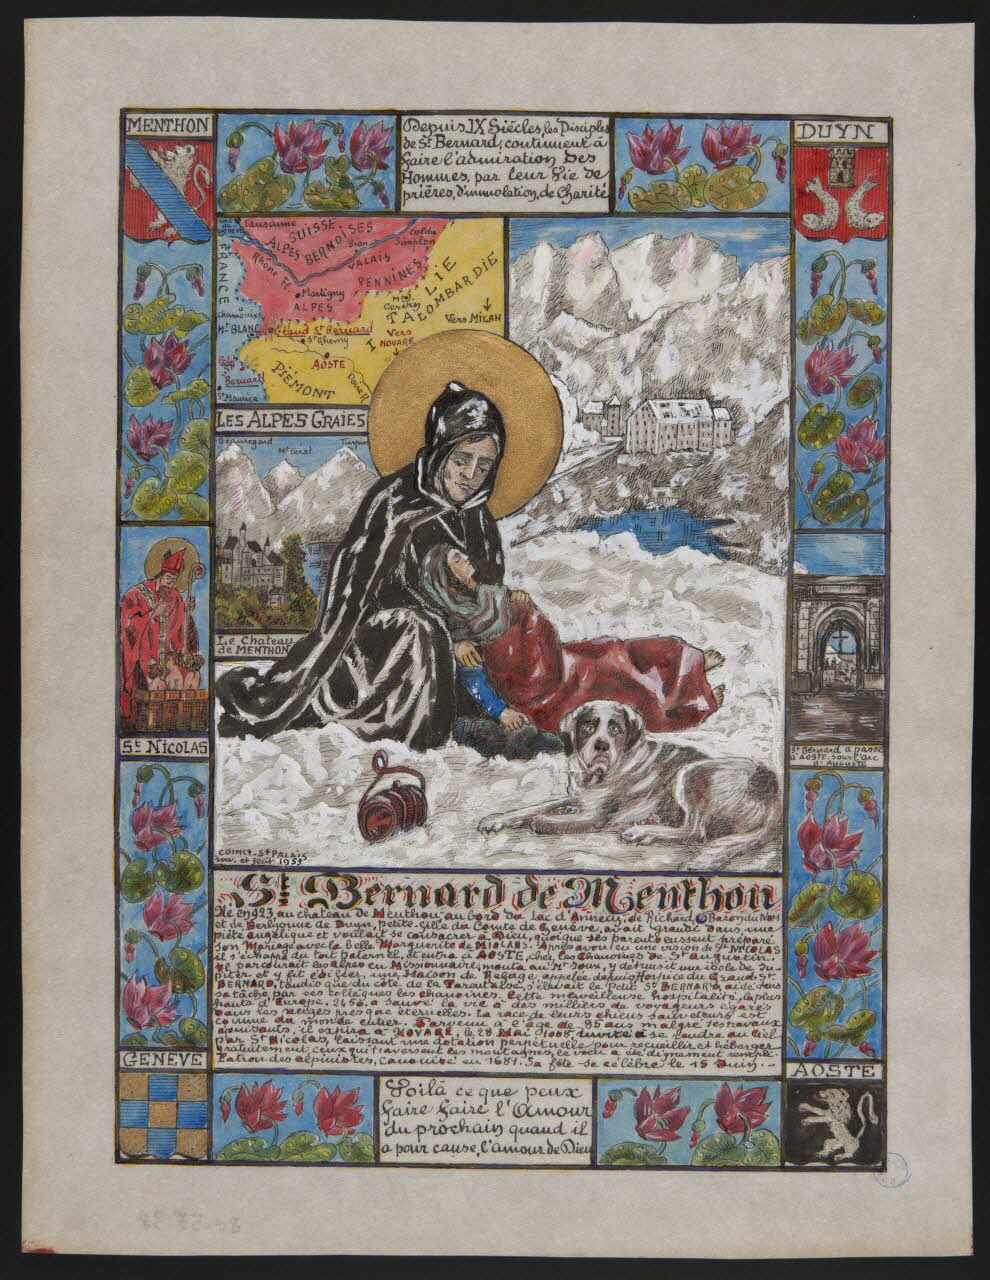 MENTHON
Depuis IX Siécles, les Disciples
de St Bernard, continuent à
faire l'admiration Des
Hommes, par leur Vie de
prières, d'immolation, de Charité
DUYN
Lausanne
SUISSE
ALPES BERNOISES
Rhone Ft.
Sion
VALAIS
Simplon
FRANCE
Martigny
ALPES
PENNINES
Chamonix
Mt BLANC
Grand St Bernard
St Rhemy
AOSTE
Bernard
St Maurice
PIÉMONT
ITALIE
LOMBARDIE
Vers
NOVARE
Vers MILAN
LES ALPES GRAIES
Beauregard
Le Chateau
de MENTHON
St NICOLAS
St Bernard a passé
à AOSTE, sous l'arc
d'AUGUSTE
COINCY-St PALAIS
inv. et fecit 1953
St Bernard de Menthon
Né en 923, au château de Menthon, au bord du lac d'Annecy, de Richard, Baron du NOM
et de Berlyonne de Duyn, petite-fille du Comte de Genève, avait grandi dans une
piété angélique et voulait se consacrer à Dieu, quoique ses parents eussent préparé
son Mariage avec la belle Marguerite de MIOLANS. Après avoir eu une vision de St NICOLAS
il s'échappa du toit paternel, et entra à AOSTE, chez les Chanoines de St Augustin.
Il parcourait les Alpes en Missionnaire, monta au Mt Joux, y détruisit une idole de Ju-
piter et y fit édifier, une Maison de Refuge, appelée depuis Hospice du Grand St
BERNARD, tandis que du côté de la Tarentaise, s'élevait le Petit St BERNARD, aidé dans
sa tâche par ses collègues les chanoines. Cette merveilleuse hospitalité, la plus
haute d'Europe, 2450, a sauvé la vie à des milliers de voyageurs égarés
dans les neiges presque éternelles. La race de leurs chiens sauveteurs est
connue du monde entier. Parvenu à l'âge de 85 ans malgré ses travaux
épuisants, il expira à NOVARE, le 28 Mai 1008, invité à se rendre au Ciel
par St Nicolas, laissant une dotation perpétuelle pour recueillir et héberger
gratuitement, ceux qui traversent les montagnes, le vœu a été dignement rempli.
Patron des alpinistes, Canonisé en 1681. Sa fête se célèbre le 15 Juin.
GENEVE
AOSTE
Voilà ce que peux
faire faire l'Amour
du prochain quand il
a pour cause, l'amour de Dieu